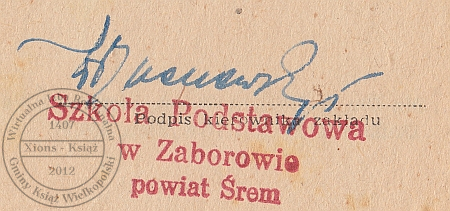 Podpis kierownika zakładu
Szkoła Podstawowa
w Zaborowie
powiat Śrem
Wirtualna
Regionalna
1407
Xions - Książ
2012
Gminy Książ Wielkopolski